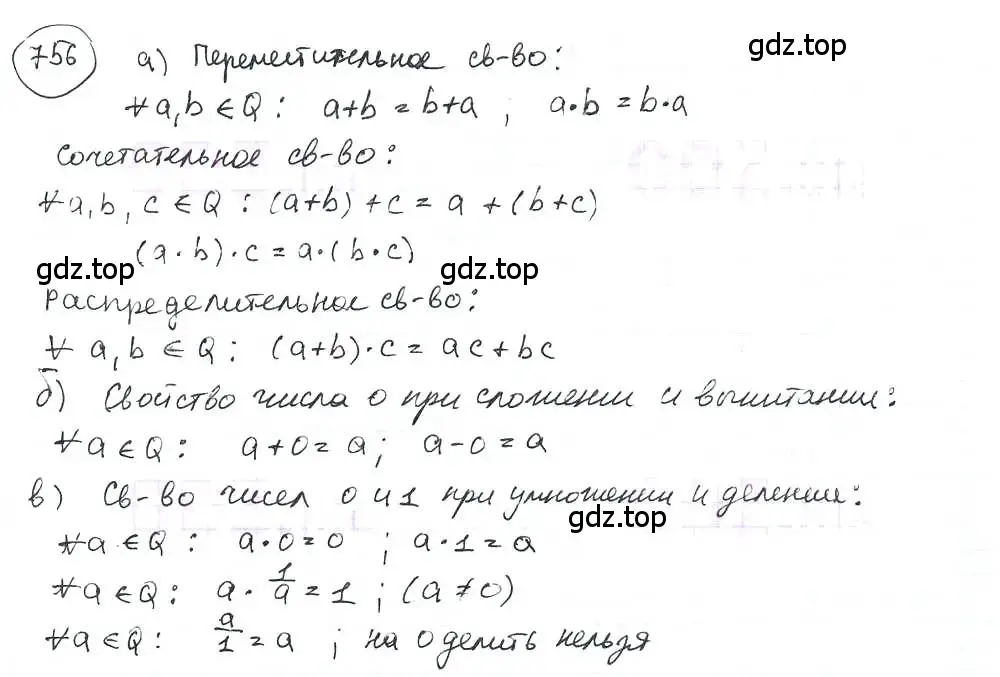 756 а) Переместительное св-во: gdz.top
∀a,b ∈ Q: a+b = b+a ; a·b = b·a
Сочетательное св-во:
∀a,b,c ∈ Q : (a+b)+c = a+(b+c)
(a·b)·c = a·(b·c)
gdz.top gdz.top
Распределительное св-во:
∀ a,b ∈ Q: (a+b)·c = ac+bc
б) Свойство числа 0 при сложении и вычитании:
∀a ∈ Q: a+0=a; a-0=a
в) Св-во чисел 0 и 1 при умножении и делении:
gdz.top
∀a ∈ Q: a·0=0 ; a·1=a
∀a ∈ Q: a·1/a=1 ; (a≠0)
∀a ∈ Q: a/1=a ; на 0 делить нельзя